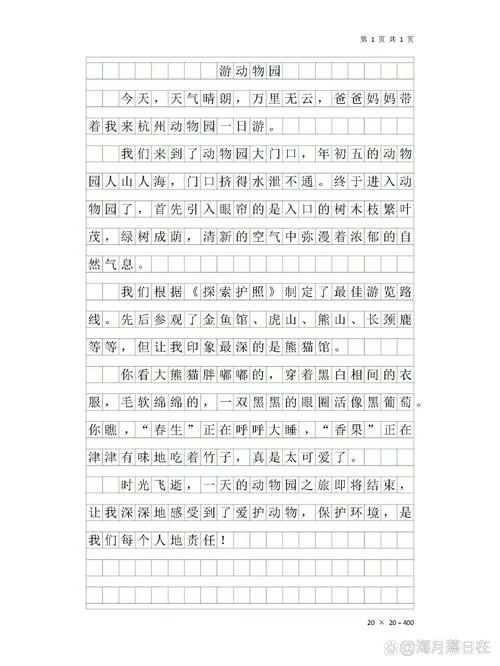 第 1 页 共 1 页
游动物园
今天，天气晴朗，万里无云，爸爸妈妈带
着我来杭州动物园一日游。
我们来到了动物园大门口，年初五的动物
园人山人海，门口挤得水泄不通。终于进入动
物园了，首先引入眼帘的是入口的树木枝繁叶
茂，绿树成荫，清新的空气中弥漫着浓郁的自
然气息。
我们根据《探索护照》制定了最佳游览路
线。先后参观了金鱼馆、虎山、熊山、长颈鹿
等等，但让我印象最深的是熊猫馆。
你看大熊猫胖嘟嘟的，穿着黑白相间的衣
服，毛软绵绵的，一双黑黑的眼圈活像黑葡萄。
你瞧，“春生”正在呼呼大睡，“香果”正在
津津有味地吃着竹子，真是太可爱了。
时光飞逝，一天的动物园之旅即将结束，
让我深深地感受到了爱护动物，保护环境，是
我们每个人地责任！
20 × 20 = 400
@海月落日在